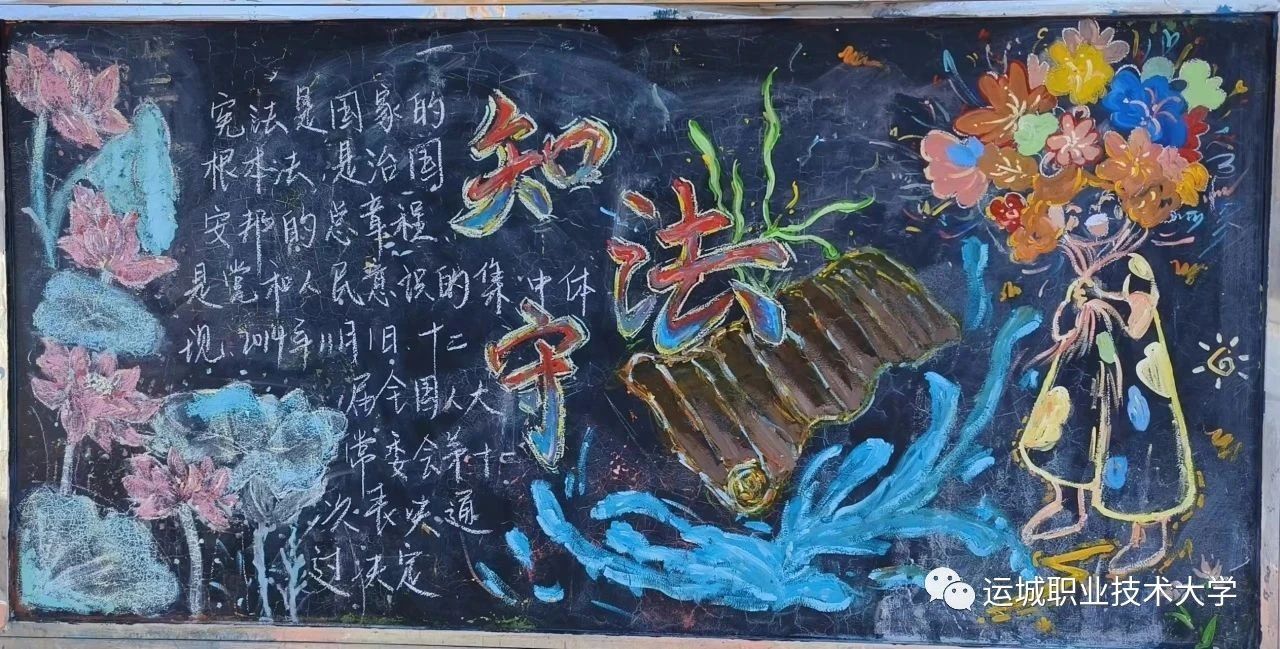 宪法是国家的
根本法,是治国
安邦的总章程、
是党和人民意识的集中体
现、2014年11月1日、十二
届全国人大
常委会第十二
次表决通
过决定
知
法
守
运城职业技术大学